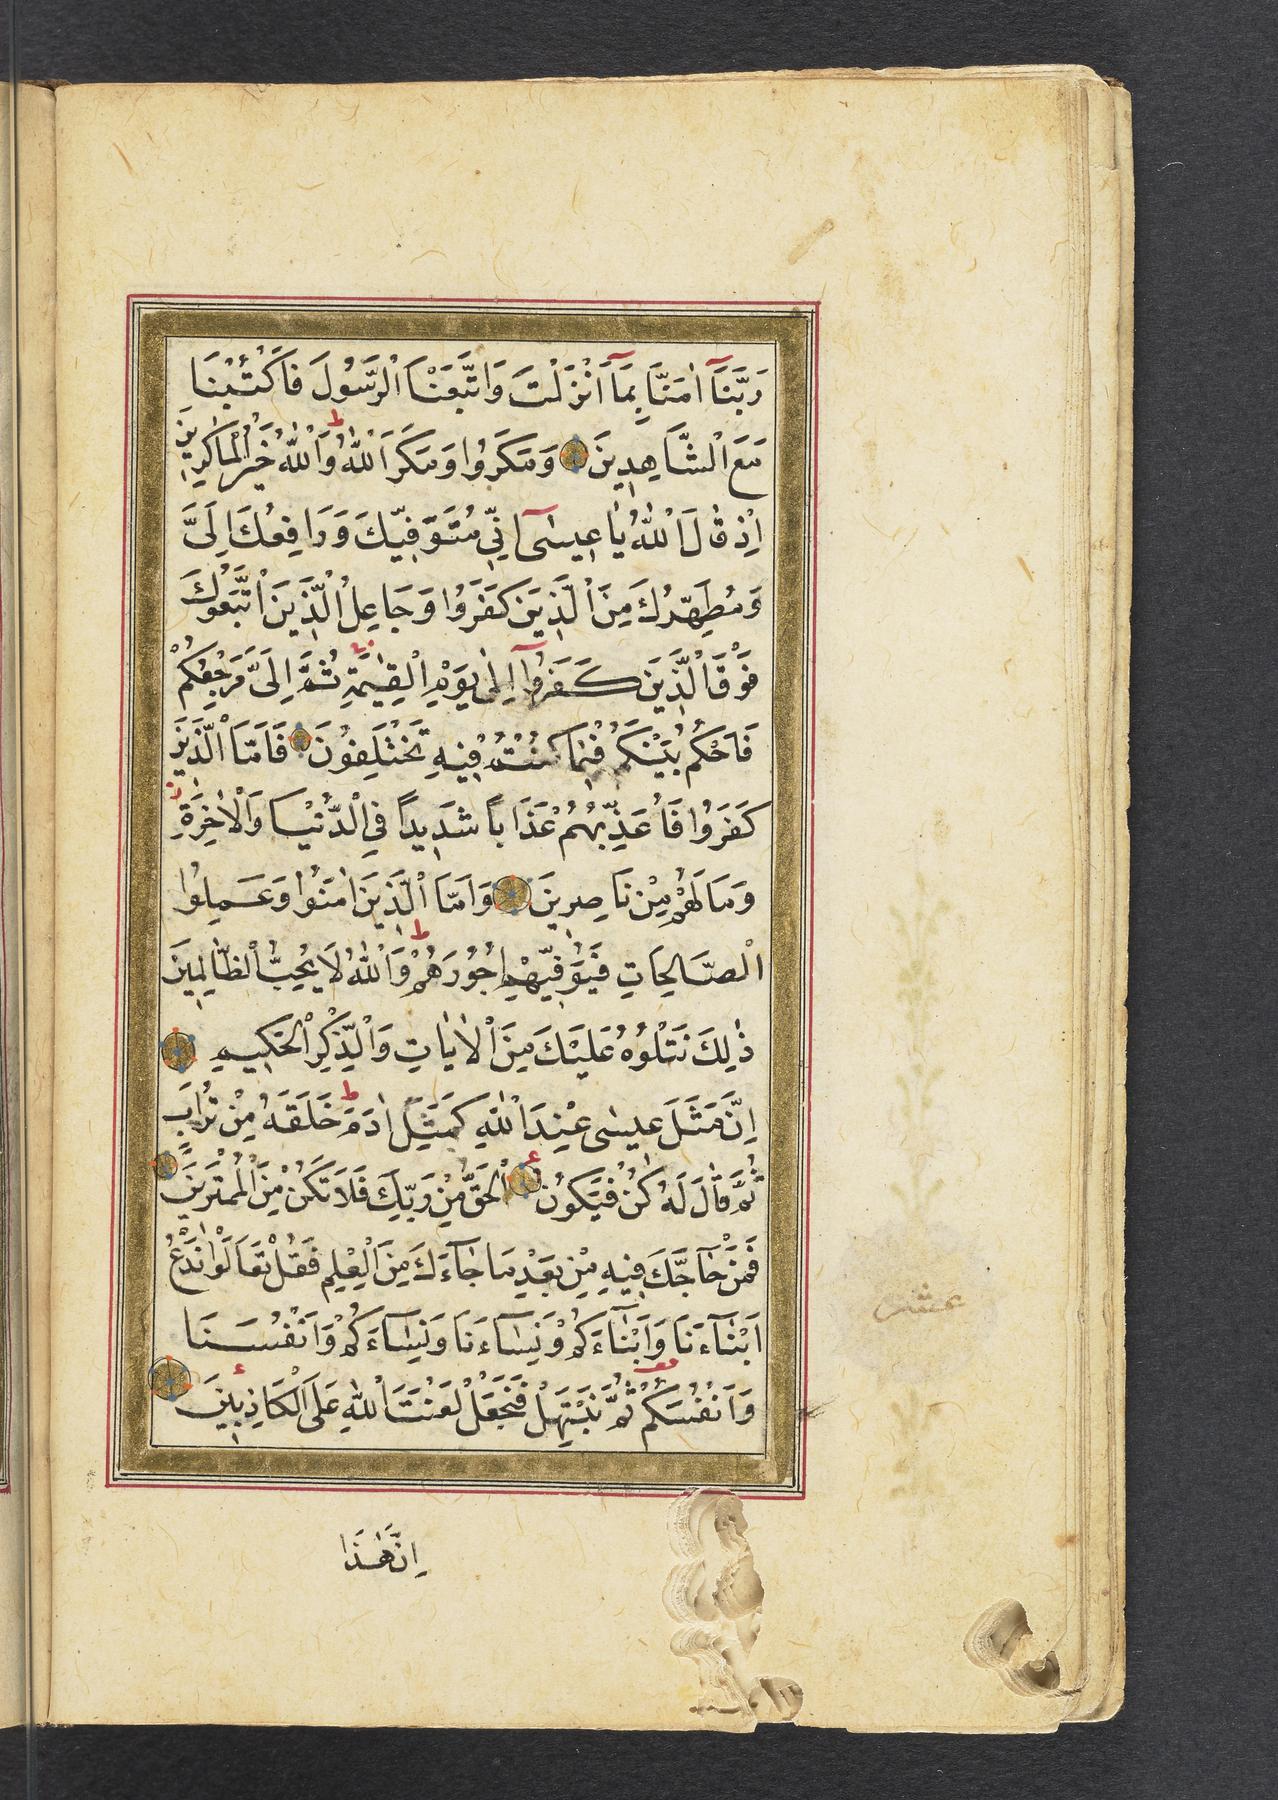 رَبَّنَآ اٰمَنَّا بِمَآ اَنْزَلْتَ وَاتَّبَعْنَا الرَّسُولَ فَاكْتُبْنَا
مَعَ الْشَّاهِدِينَ وَمَكَرُوا وَمَكَرَ اَللّٰهُ ط وَاَللّٰهُ خَيْرُ الْمَاكِرِينَ
اِذْ قَالَ اَللّٰهُ يَا عِيسٰىٓ اِنِّي مُتَوَفِّيكَ وَرَافِعُكَ اِلَىَّ
وَمُطَهِّرُكَ مِنَ الَّذِينَ كَفَرُوا وَجَاعِلُ الَّذِينَ اتَّبَعُوكَ
فَوْقَ الَّذِينَ كَفَرُوٓا اِلٰى يَوْمِ الْقِيٰمَةِ ثُمَّ اِلَىَّ مَرْجِعُكُمْ
فَاَحْكُمُ بَيْنَكُمْ فِيمَا كُنْتُمْ فِيهِ تَخْتَلِفُونَ فَاَمَّا الَّذِينَ
كَفَرُوا فَاُعَذِّبُهُمْ عَذَابًا شَدِيدًا فِي الْدُّنْيَا وَالْاٰخِرَةِ
وَمَا لَهُمْ مِنْ نَاصِرِينَ وَاَمَّا الَّذِينَ اٰمَنُوا وَعَمِلُوا
الْصَّالِحَاتِ فَيُوَفِّيهِمْ اُجُورَهُمْ ط وَاَللّٰهُ لَا يُحِبُّ الْظَّالِمِينَ
ذٰلِكَ نَتْلُوهُ عَلَيْكَ مِنَ الْاٰيَاتِ وَالْذِّكْرِ الْحَكِيمِ
اِنَّ مَثَلَ عِيسٰى عِنْدَ اَللّٰهِ كَمَثَلِ اٰدَمَ ط خَلَقَهُ مِنْ تُرَابٍ
ثُمَّ قَالَ لَهُ كُنْ فَيَكُونُ اَلْحَقُّ مِنْ رَبِّكَ فَلَا تَكُنْ مِنَ الْمُمْتَرِينَ
فَمَنْ حَآجَّكَ فِيهِ مِنْ بَعْدِ مَا جَآءَكَ مِنَ الْعِلْمِ فَقُلْ تَعَالَوْا نَدْعُ
اَبْنَآءَنَا وَاَبْنَآءَكُمْ وَنِسَآءَنَا وَنِسَآءَكُمْ وَاَنْفُسَنَا
وَاَنْفُسَكُمْ ثُمَّ نَبْتَهِلْ فَنَجْعَلْ لَعْنَتَ اَللّٰهِ عَلَى الْكَاذِبِينَ
اِنَّ هٰذَا
عشر